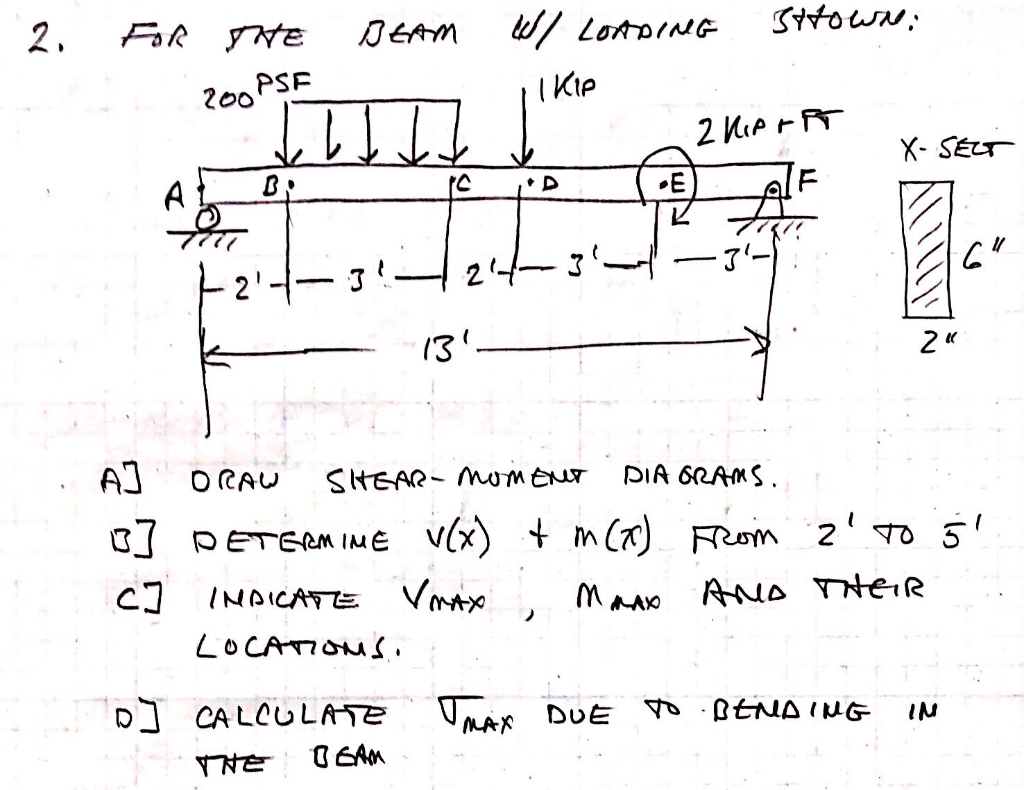 2. FOR THE BEAM W/ LOADING SHOWN:
200 PSF
1 KIP
2 KIP + FT
X-SECT
A
B
C
D
E
F
6"
2'
3'
2'
3'
3'
2"
13'
A] DRAW SHEAR-MOMENT DIAGRAMS.
B] DETERMINE V(X) + M(X) FROM 2' TO 5'
C] INDICATE VMAX, MMAX AND THEIR
LOCATIONS.
D] CALCULATE σMAX DUE TO BENDING IN
THE BEAM